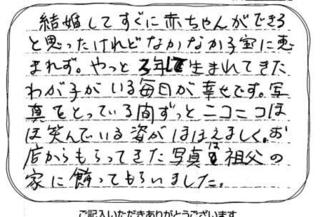 結婚してすぐに赤ちゃんができる
と思ったけれどなかなか子宝に恵
まれず。やっと3年で生まれてきた
わが子がいる毎日が幸せです。写
真をとっている間ずっとニコニコほ
ほ笑んでいる姿がほほえましく。お
店からもらってきた写真は祖父の
家に飾ってもらいました。
ご記入いただきありがとうございます